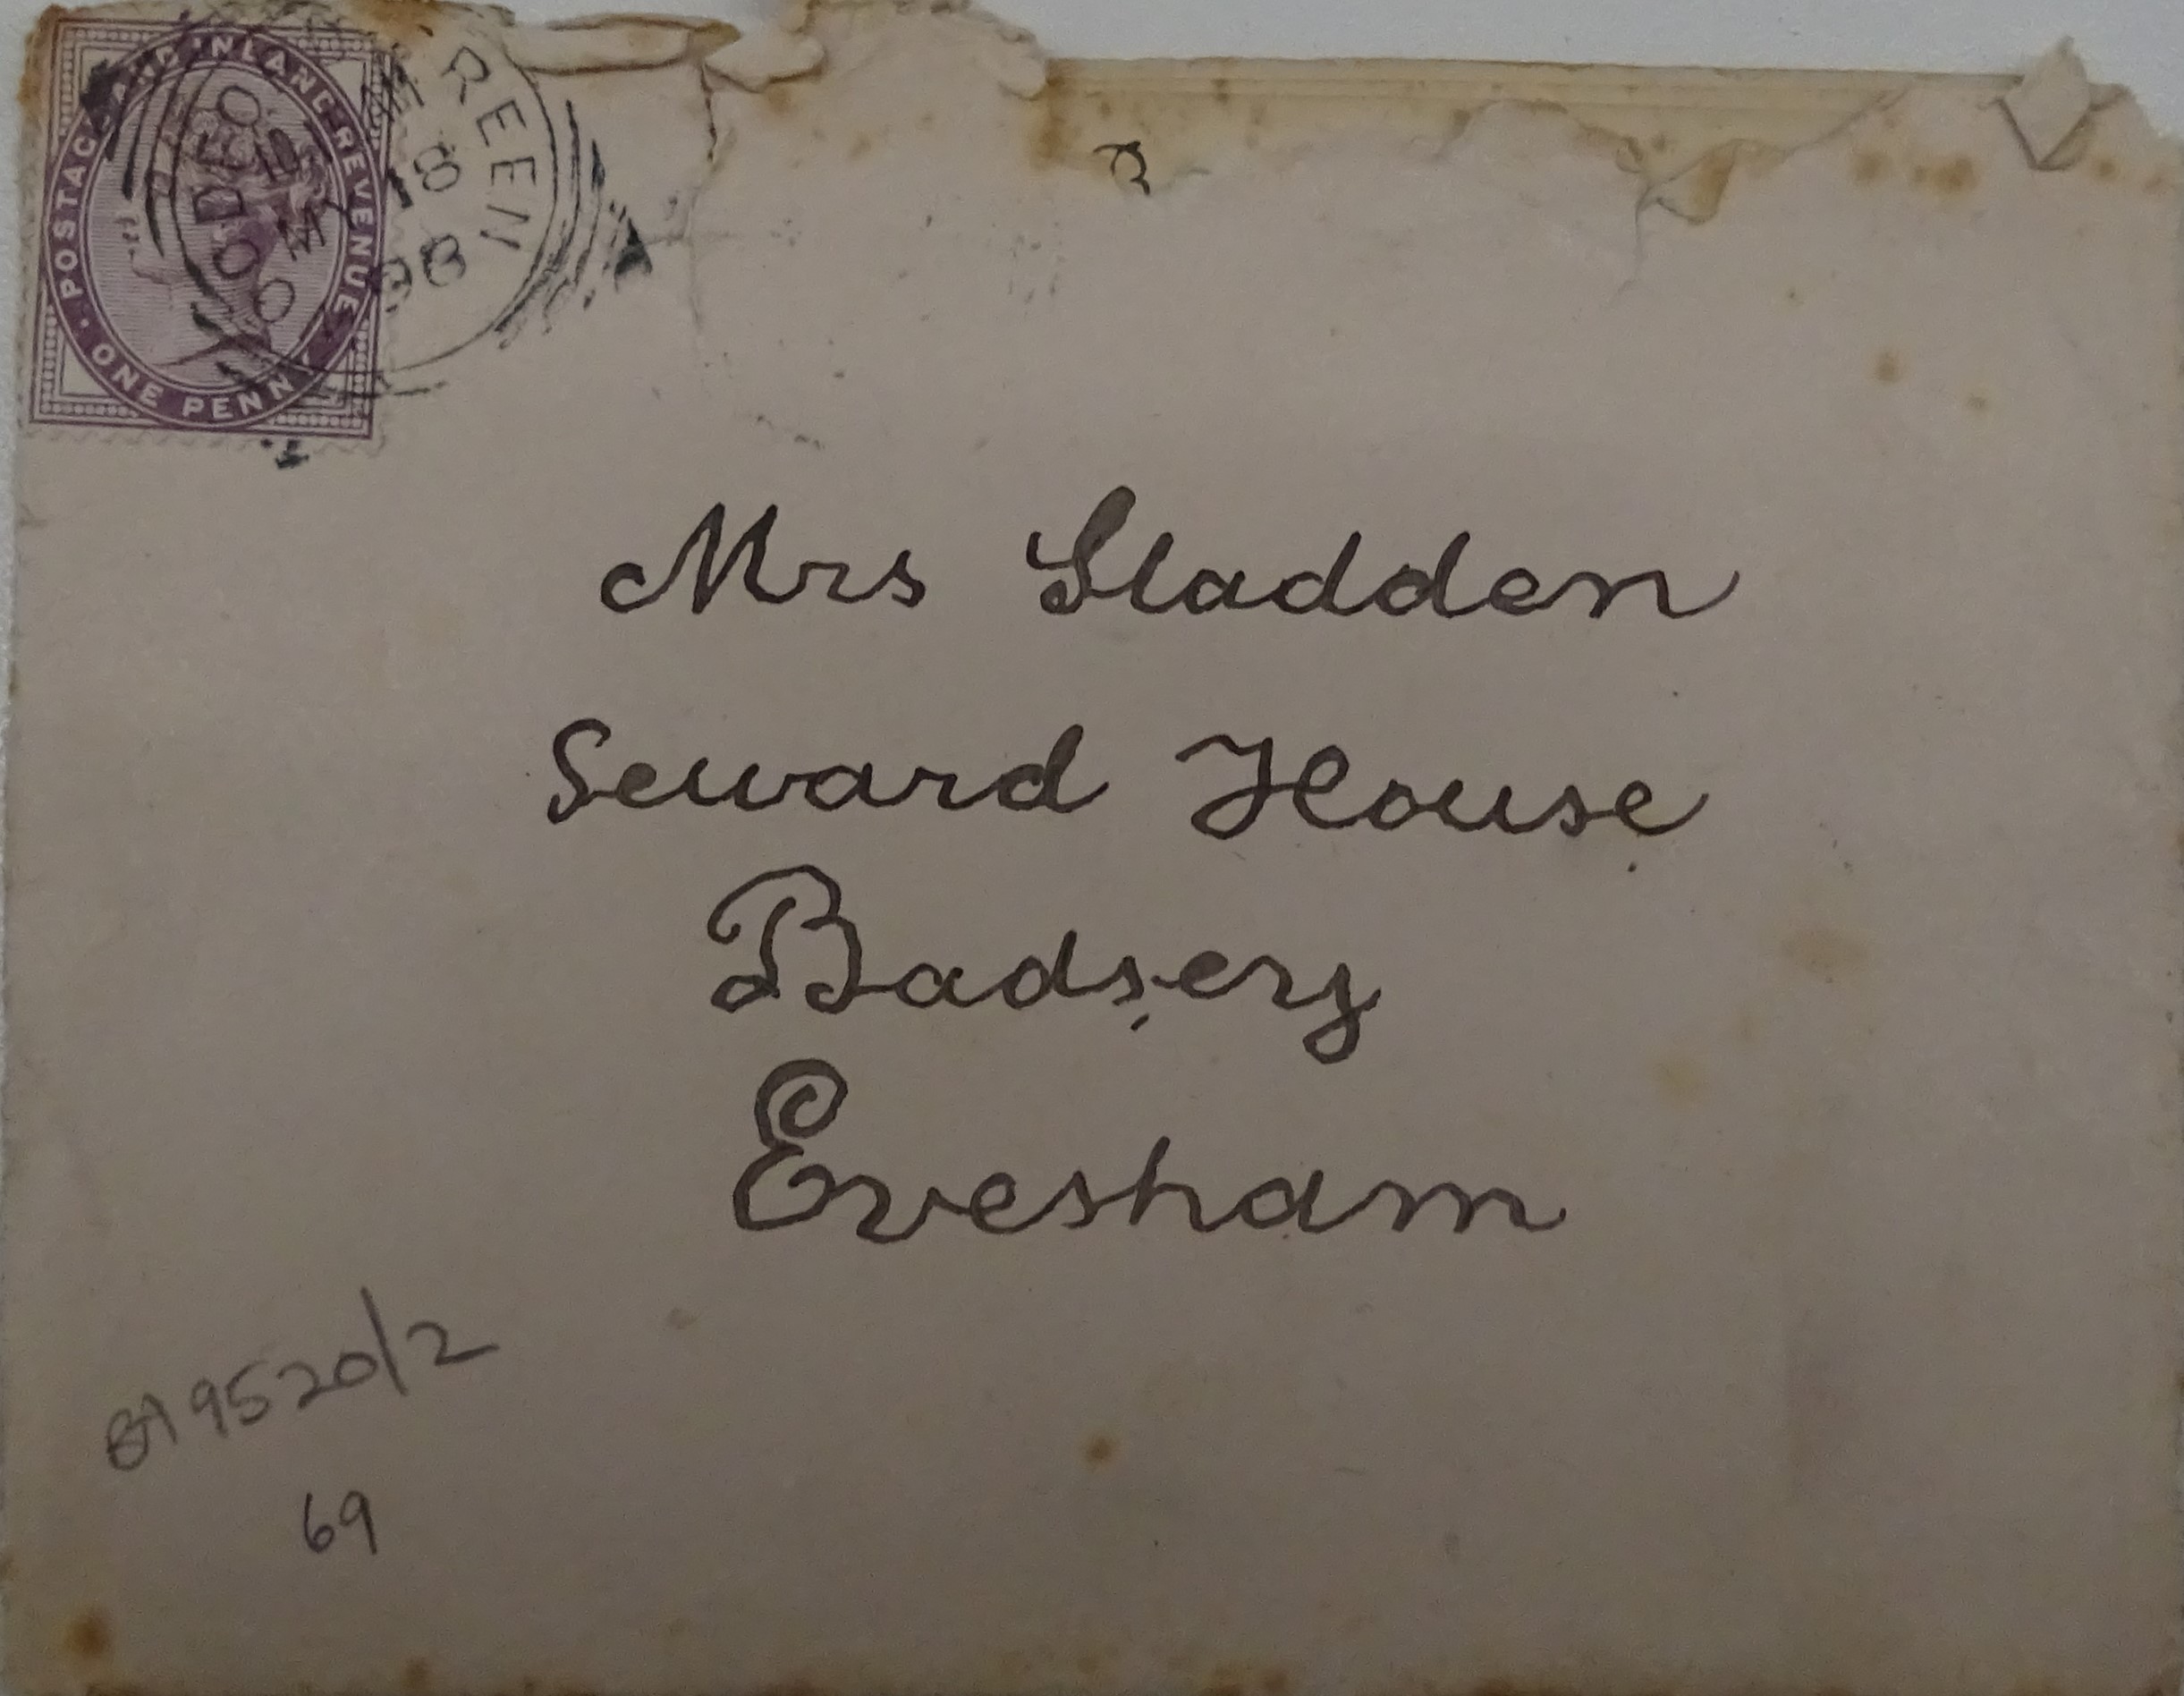 POSTAGE AND INLAND REVENUE · ONE PENNY
REEN
MY 18
98
Mrs Sladden
Seward House
Badsey
Evesham
BA 9520/2
69